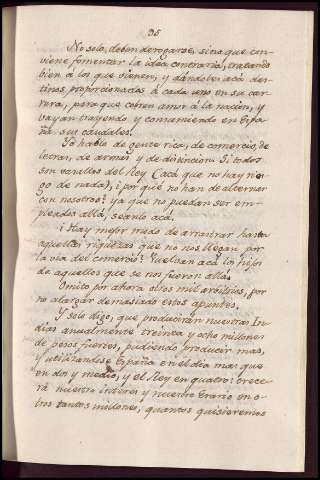 35
No solo, deben derogarse, sino que con-
viene fomentar la idea contraria, tratando
bien á los que vienen, y dandoles acá des-
tinos, proporcionados á cada uno en su car-
rera, para que cobren amor á la nacion, y
vayan trayendo, y consumiendo en Espa-
ña sus caudales.
Yo hablo de gente rica, de comercio, de
letras, de armas y de distincion. Si todos
son vasallos del Rey (Cacá que no hay nin-
go de nada), ¿por qué no han de alternar
con nosotros? ya que no puedan ser em-
pleados allá, seanlo acá.
¿Hay mejor modo de arrastrar hasta
aquellas riquezas que no nos llegan por
la via del comercio? Vuelvan acá los hijos
de aquellos que se nos fueron allá.
Omito por ahora otros mil arbitrios, por
no alargar demasiado estos apuntes.
Y solo digo, que produciran nuestras In-
dias anualmente treinta y ocho millones
de pesos fuertes, pudiendo producir mas,
y utilizandose España en el dia mas que
en dos y medio, y el Rey en quatro: crece-
rá nuestro interés y nuestro Erario en o-
tros tantos millones, quantos quisieremos